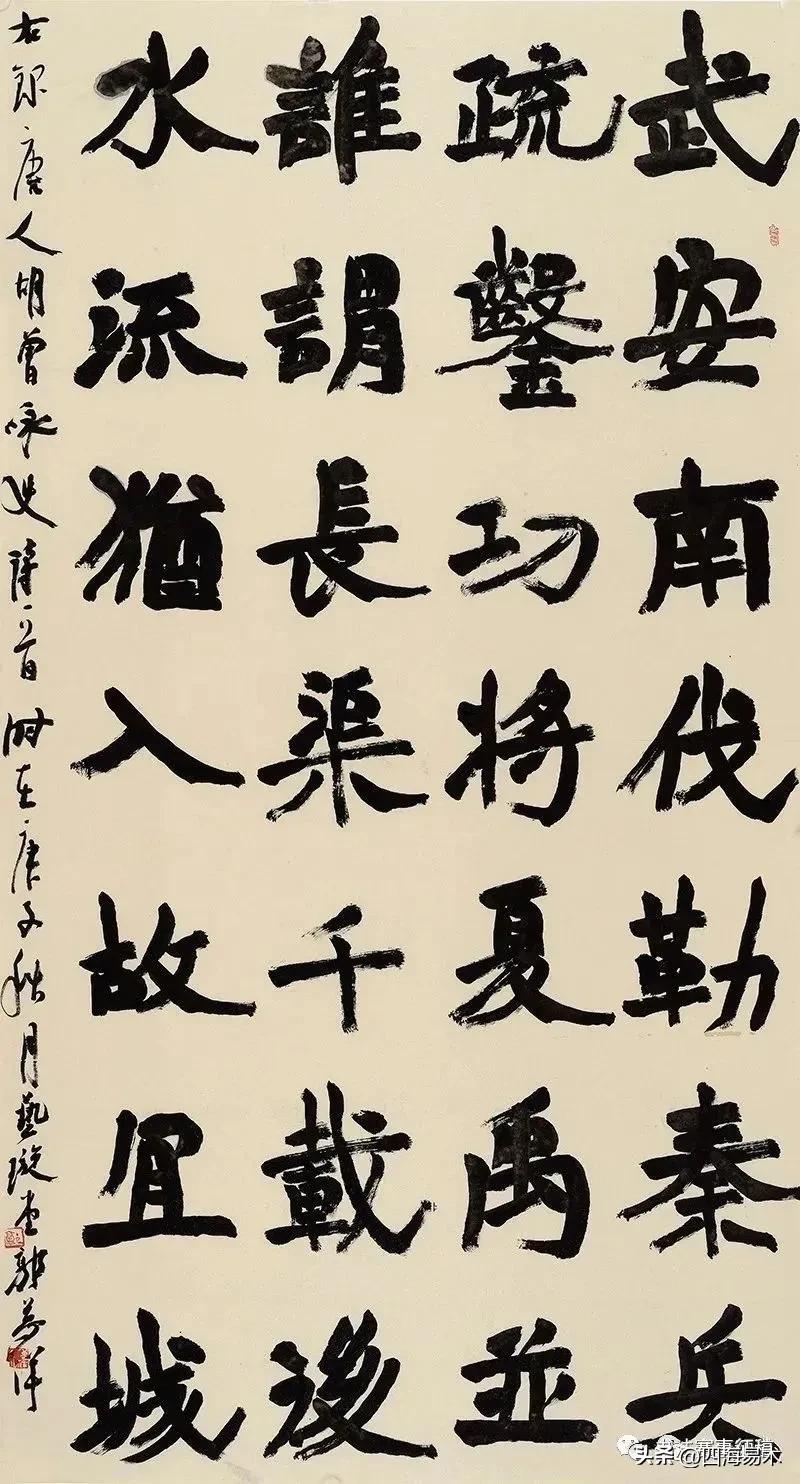 武安南伐勒秦兵
疏鑿功將夏禹並
誰謂長渠千載後
水流猶入故宜城
右錄唐人胡曾咏史詩一首時在庚子秋月藝璇堂
头条@四海易术